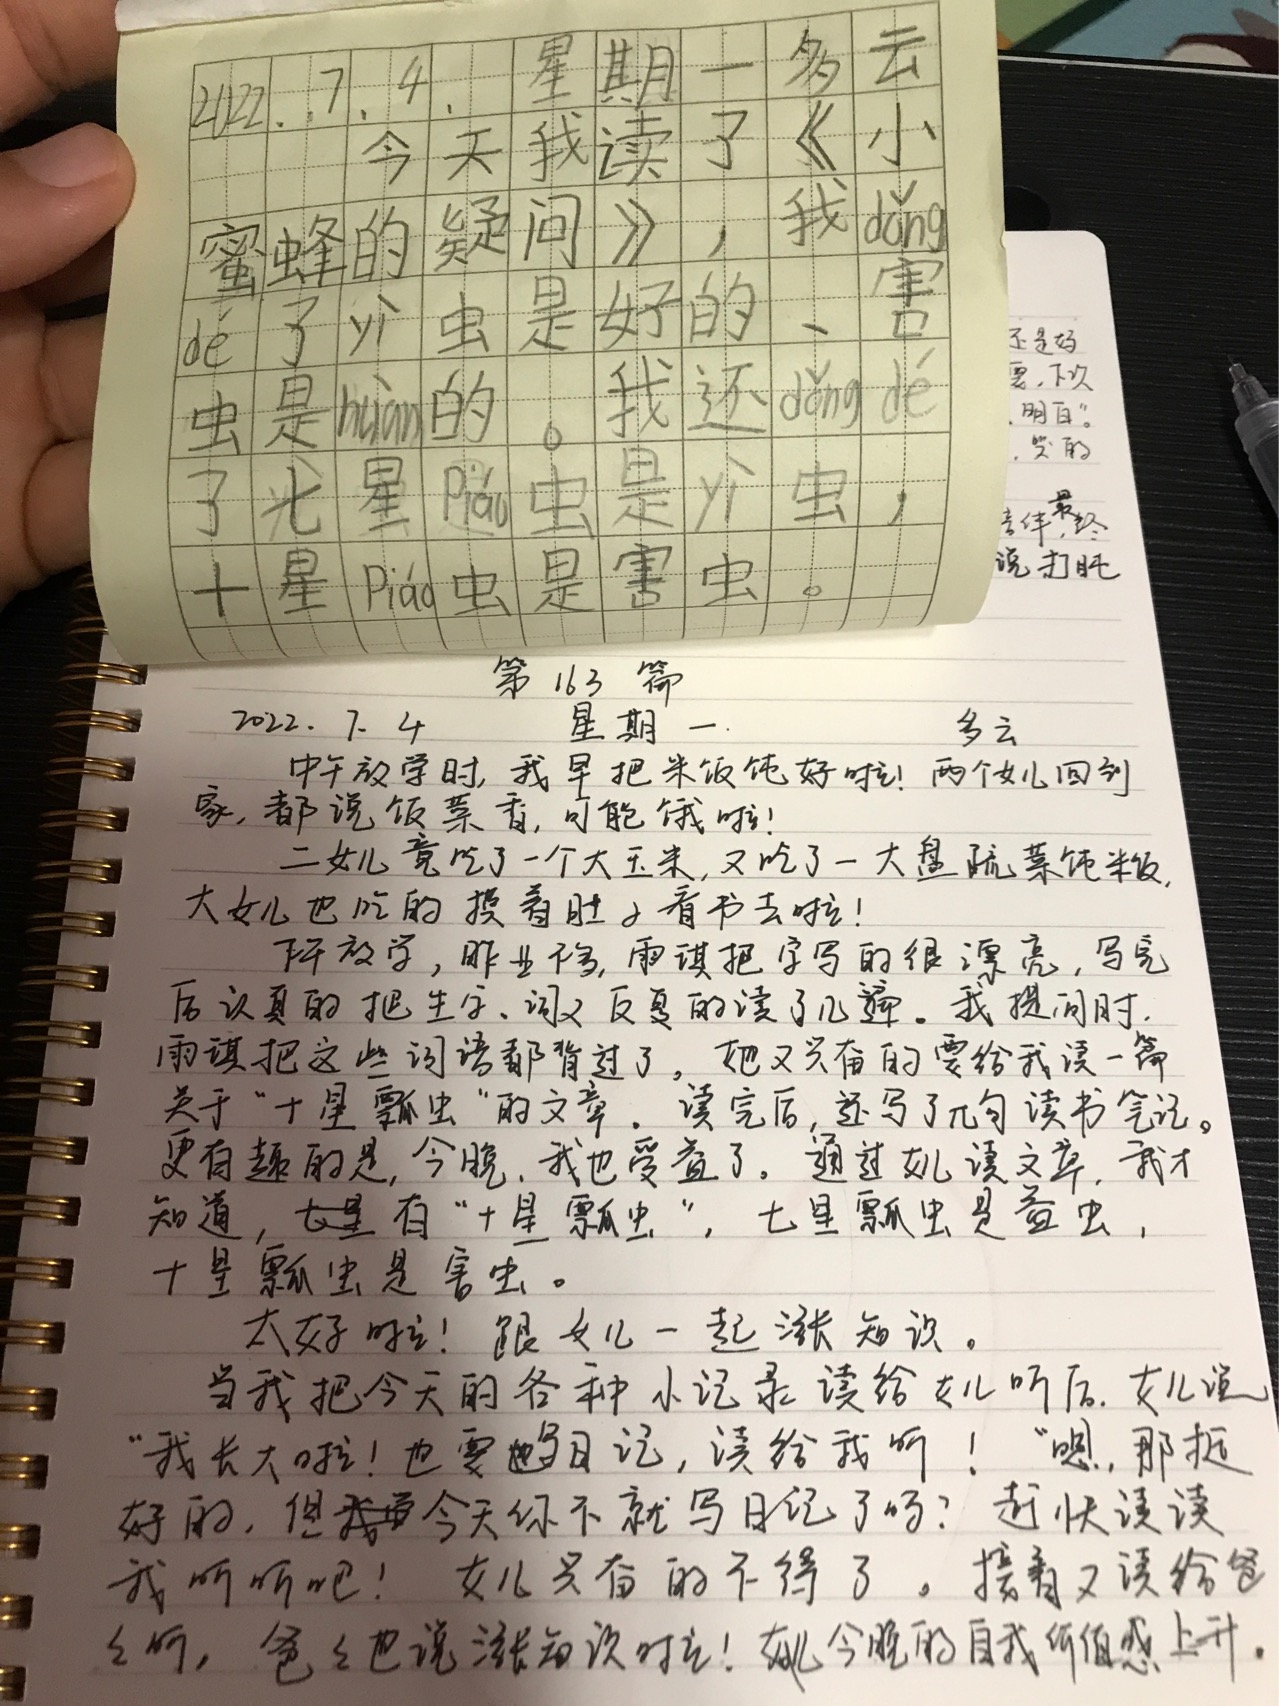 2022.7.4. 星期一多云
今天我读了《小
蜜蜂的疑问》,我dǒng
dé了yì虫是好的、害
虫是huàn的。我还dǒng dé
了七星Piáo虫是yì虫,
十星Piáo虫是害虫。
还是好
要,下次
明白”。
,哭的
最终
说打盹
第163篇
2022.7.4 星期一 多云
中午放学时,我早把米饭炖好啦!两个女儿回到
家,都说饭菜香,可能饿啦!
二女儿竟吃了一个大玉米,又吃了一大盘蔬菜炖米饭,
大女儿也吃的摸着肚子看书去啦!
下午放学,昨业不多,雨琪把字写的很漂亮,写完
后认真的把生字、词又反复的读了几遍。我提问时,
雨琪把这些词语都背过了。她又兴奋的要给我读一篇
关于“十星瓢虫”的文章。读完后,还写了几句读书笔记。
更有趣的是,今晚,我也受益了。通过女儿读文章,我才
知道,七星有“十星瓢虫”,七星瓢虫是益虫,
十星瓢虫是害虫。
太好啦!跟女儿一起涨知识。
当我把今天的各种小记录读给女儿听后,女儿说
“我长大啦!也要写日记,读给我听!“嗯,那挺
好的,但今天你不就写日记了吗?赶快读读
我听听吧!女儿兴奋的不得了。接着又读给爸
爸听,爸爸也说涨知识啦!女儿今晚的自我价值感上升。